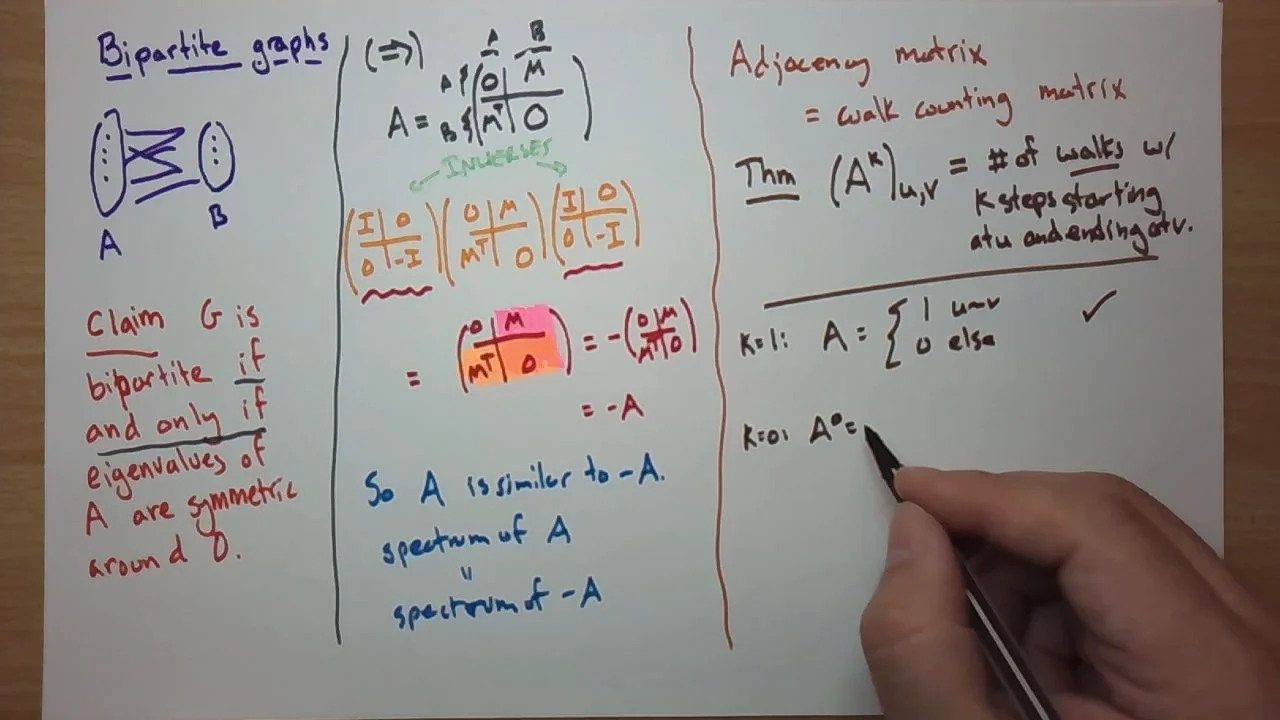 Bipartite graphs
A
B
Claim G is
bipartite if
and only if
eigenvalues of
A are symmetric
around 0.
(⇒)
A B
A { 0 | M
A = B { Mᵀ | 0
INVERSES
(I | 0 / 0 | -I) (0 | M / Mᵀ | 0) (I | 0 / 0 | -I)
= (0 | M / Mᵀ | 0) = -(0 | M / Mᵀ | 0)
= -A
So A is similar to -A.
spectrum of A
"
spectrum of -A
Adjacency matrix
= walk counting matrix
Thm (Aᵏ)u,v = # of walks w/
k steps starting
at u and ending at v.
k=1: A = { 1 u~v ✓
0 else
k=0: A⁰=